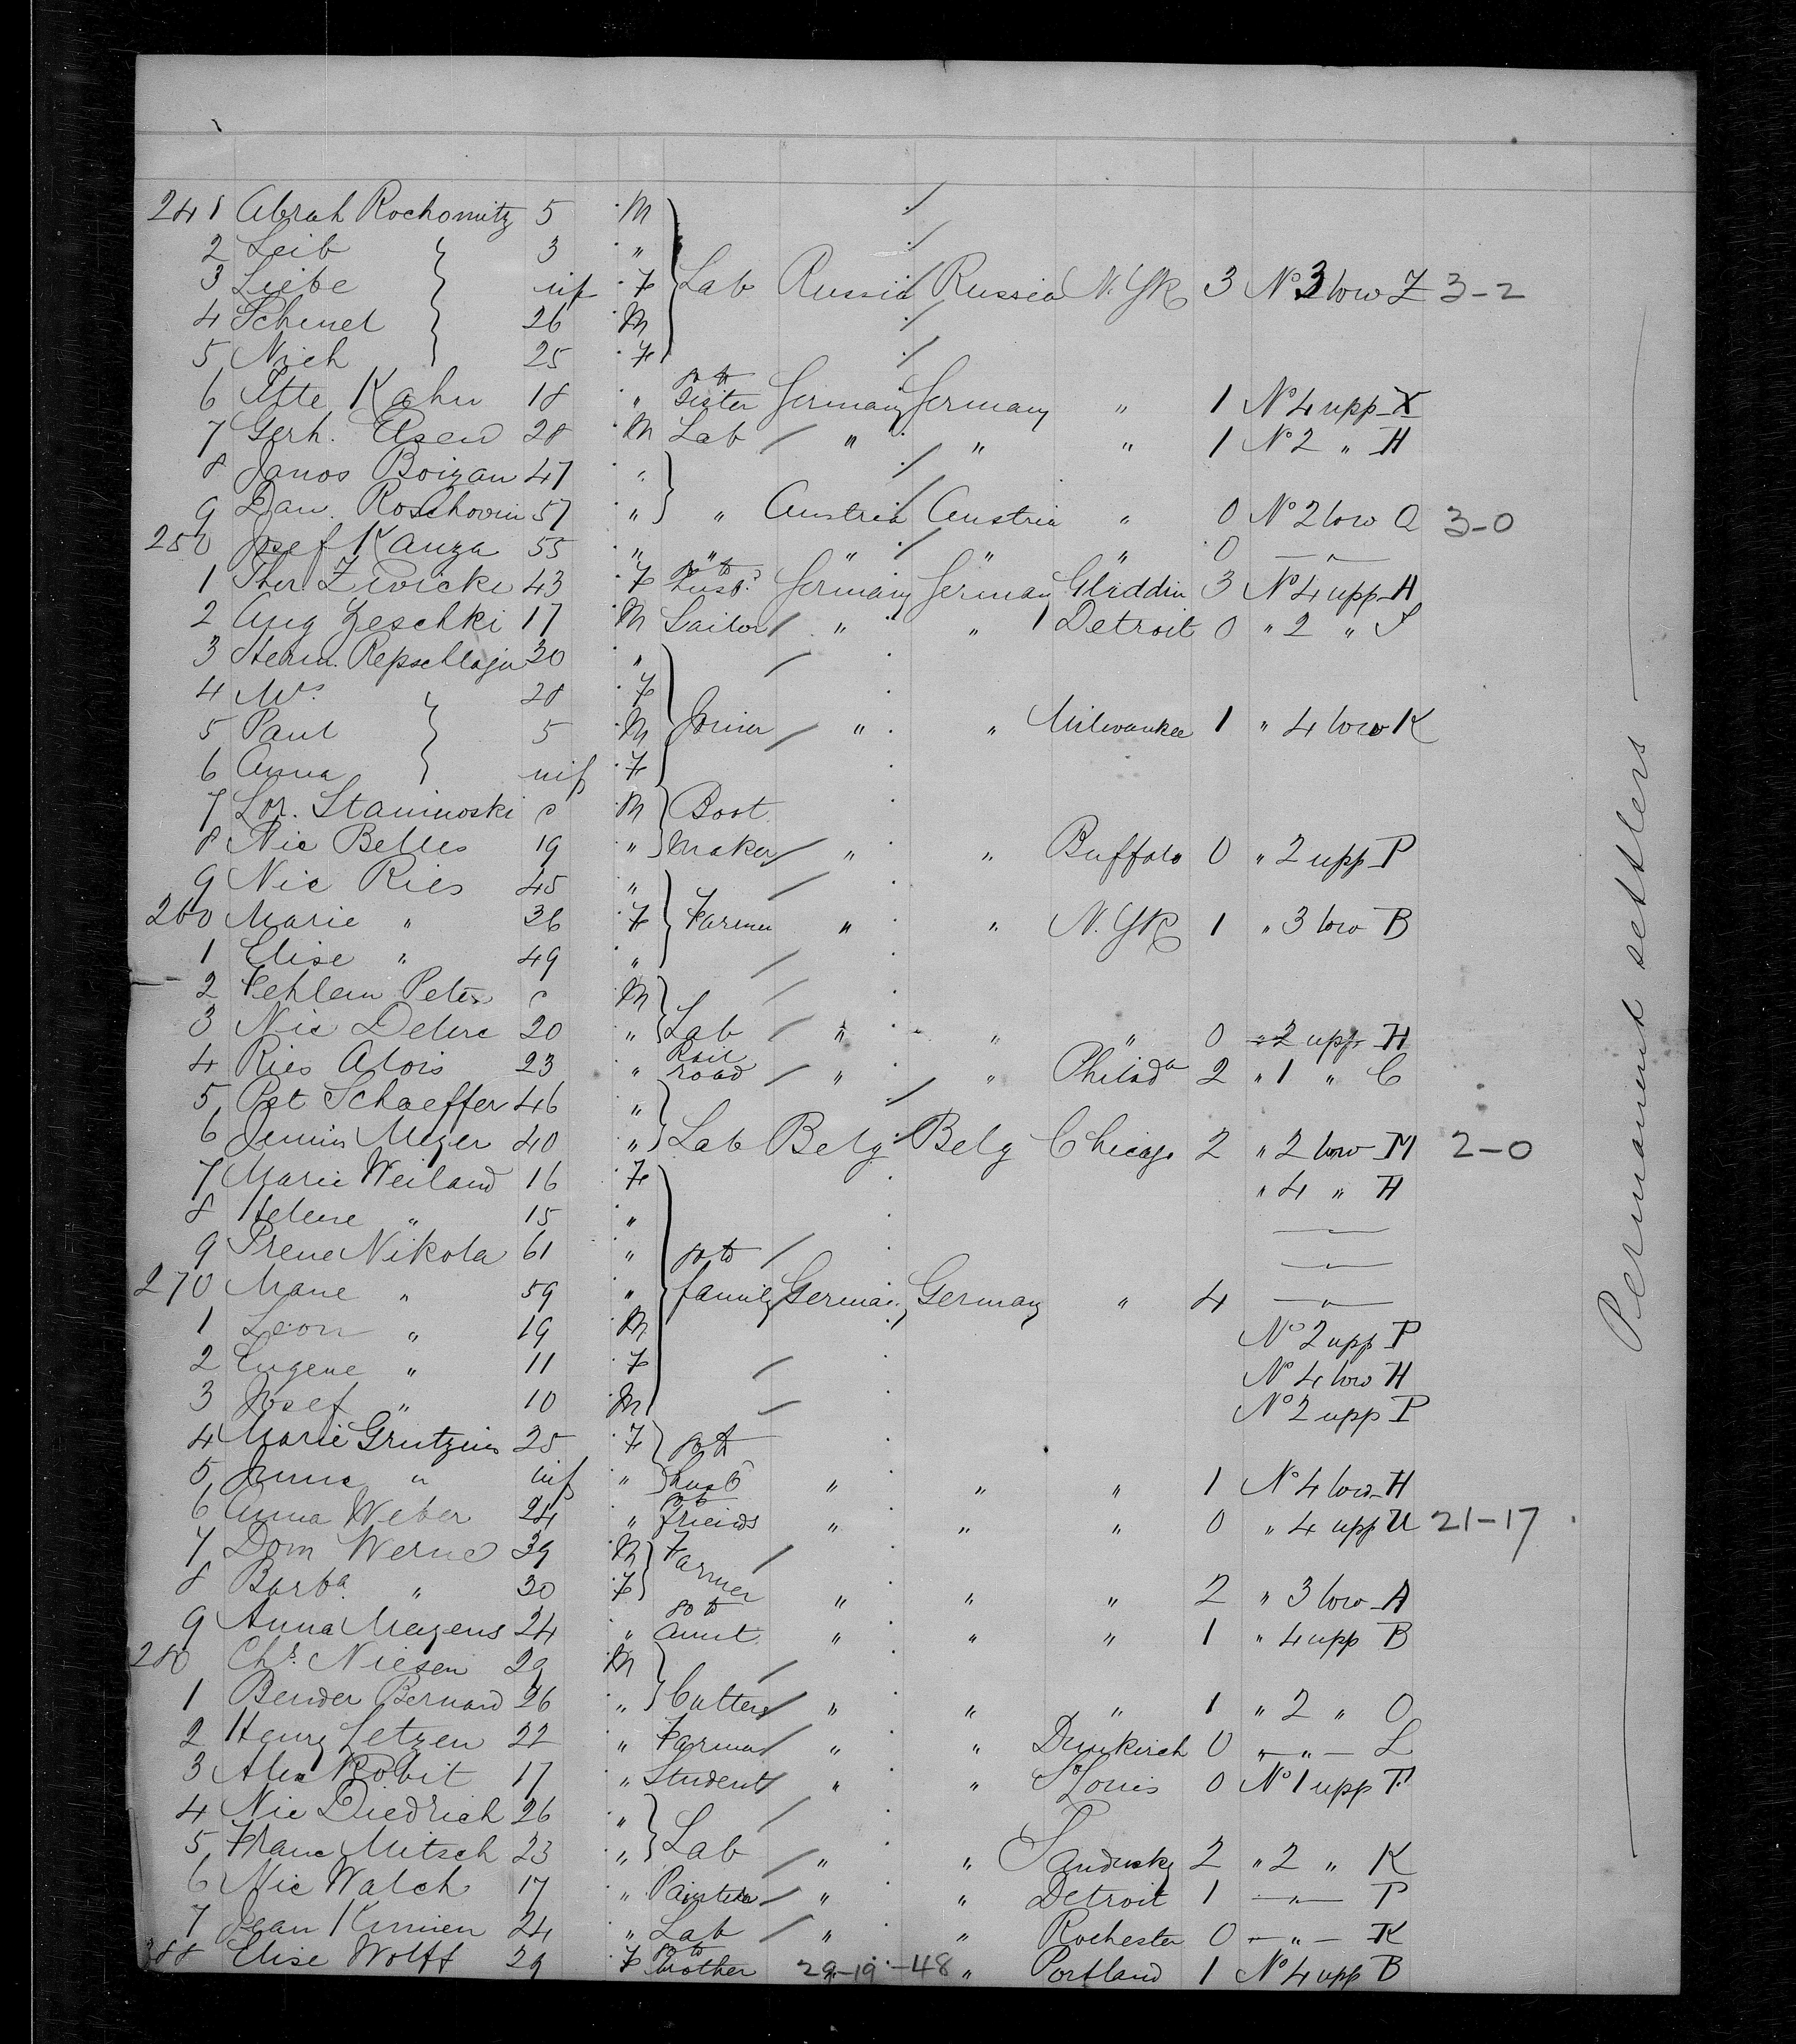 241 Abrah Rochomitz 5 M
2 Leib 3 "
3 Liebe inf F Lab Russia Russia N. Yk 3 No 3 low Z 3-2
4 Schmel 26 M
5 Nich 25 F
6 Itte Kahn 18 " go to Sister Germany Germany " 1 No 4 upp X
7 Gerh. Elsen 28 M Lab " " " 1 No 2 " H
8 Janos Boizan 47 "
9 Dan. Roschovin 57 " " Austria Austria " 0 No 2 low Q 3-0
250 Josef Kanza 55 " " " " " 0 — " —
1 Ther Zwicki 43 F go to husbd Germany Germany Gladdin 3 No 4 upp H
2 Aug Zeschki 17 M Sailor " " Detroit 0 " 2 " S
3 Herm. Repschlager 30 "
4 Mrs 28 F
5 Paul 5 M Joiner " " Milwaukee 1 " 4 low K
6 Anna inf F
7 Lor. Staninoski M Boot
8 Nic Belles 19 " maker " " Buffalo 0 " 2 upp P
9 Nic Ries 45 "
260 Marie " 36 F Farmer " " N. Yk 1 " 3 low B
1 Elise " 49 "
2 Fehlem Peter M
3 Nic Delere 20 " Lab " " " 0 " 2 upp H
4 Ries Alois 23 " Rail road " " Philada 2 " 1 " C
5 Pet Schaeffer 46 "
6 Meyer 40 " Lab Belg Belg Chicago 2 " 2 low M 2-0
7 Marie Weiland 16 F " 4 " H
8 Helene " 15 " —
9 Irene Nikola 61 " go to —
270 Marie " 59 " family Germany Germany " 4 — " —
1 Leon " 19 M No 2 upp P
2 Eugene " 11 F No 4 low H
3 Josef " 10 M No 2 upp P
4 Marie Grutzius 25 F go to
5 " inf " husb " " " 1 No 4 low H
6 Anna Weber 24 " go to friends " " " 0 " 4 upp U 21-17
7 Dom Werne 39 M Farmer
8 Barba " 30 F " " " 2 " 3 low A
9 Anna Meyens 24 " go to aunt " " " 1 " 4 upp B
280 Chr. Niesen 29 M
1 Bender Bernard 26 " Cutters " " " 1 " 2 " O
2 Henry Letzen 22 " Farmer " " Dunkirch 0 — " — L
3 Alex Robit 17 " Student " " St Louis 0 No 1 upp F
4 Nic Diedrich 26 "
5 Franc Mitsch 23 " Lab " " Sandusky 2 " 2 " K
6 Nic Walch 17 " Painter " " Detroit 1 — " — P
7 Jean Kimien 24 " Lab " " Rochester 0 — " — K
288 Elise Wolff 29 F go to brother 29-19-48 " Portland 1 No 4 upp B
Permanent settlers